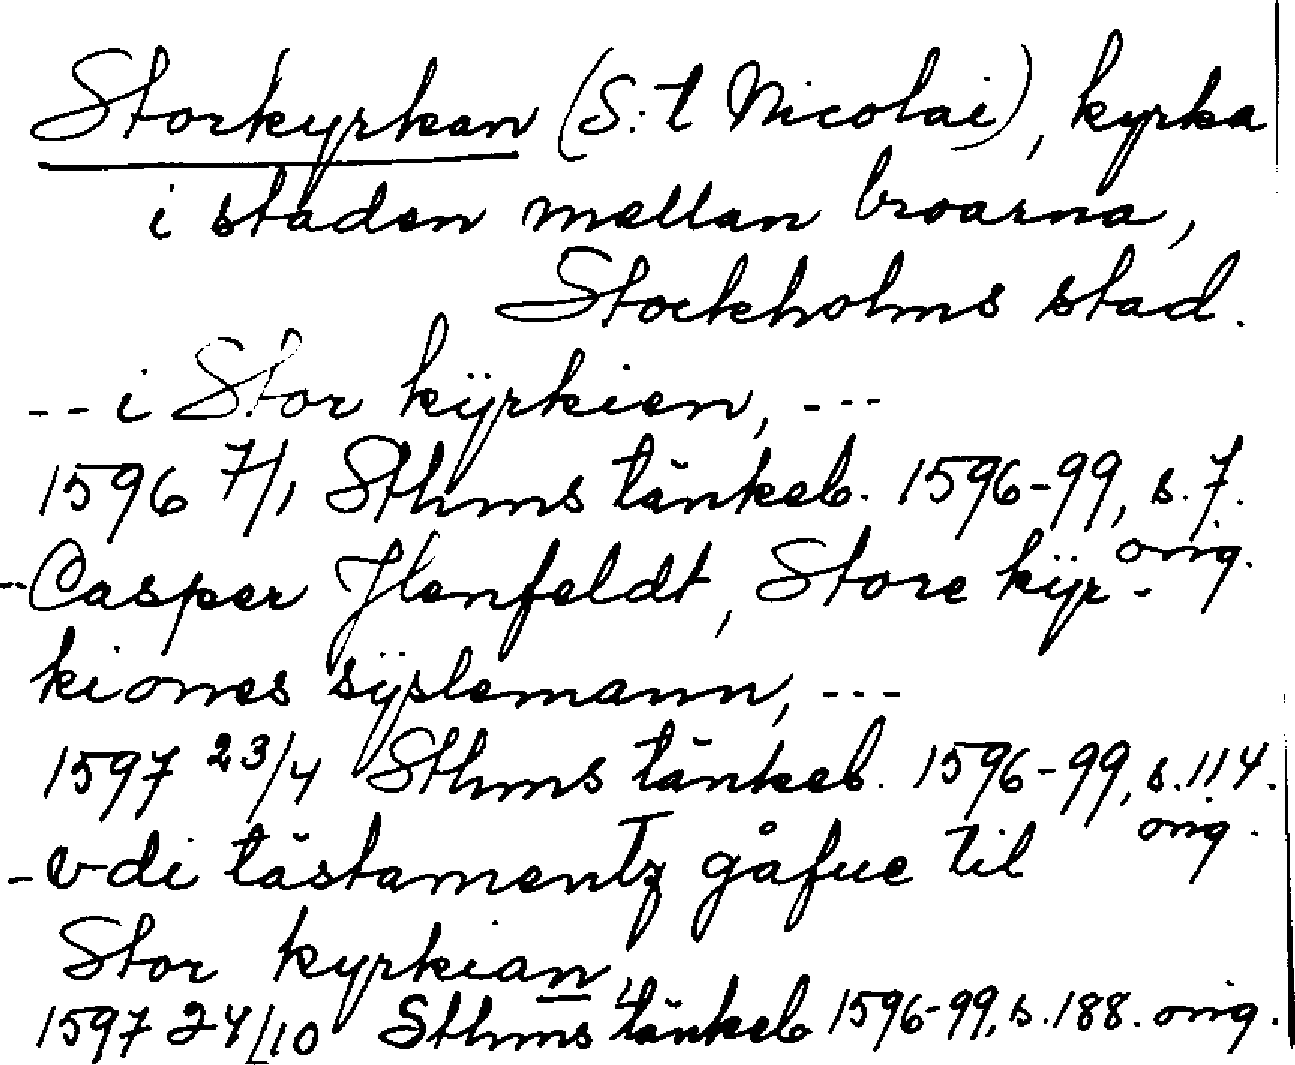 Storkyrkan (S:t Nicolai), kyrka
i staden mellan broarna,
Stockholms stad.
-- i Stor kÿrkien, ---
1596 7/1 Sthms tänkeb. 1596-99, s. 7.
orig.
- Casper Flenfeldt, Store kÿr-
kiones sÿslemann, ---
1597 23/4 Sthms tänkeb. 1596-99, s. 114.
orig.
- vdi tästamentz gåfue til
Stor kyrkian
1597 24/10 Sthms tänkeb 1596-99, s. 188. orig.